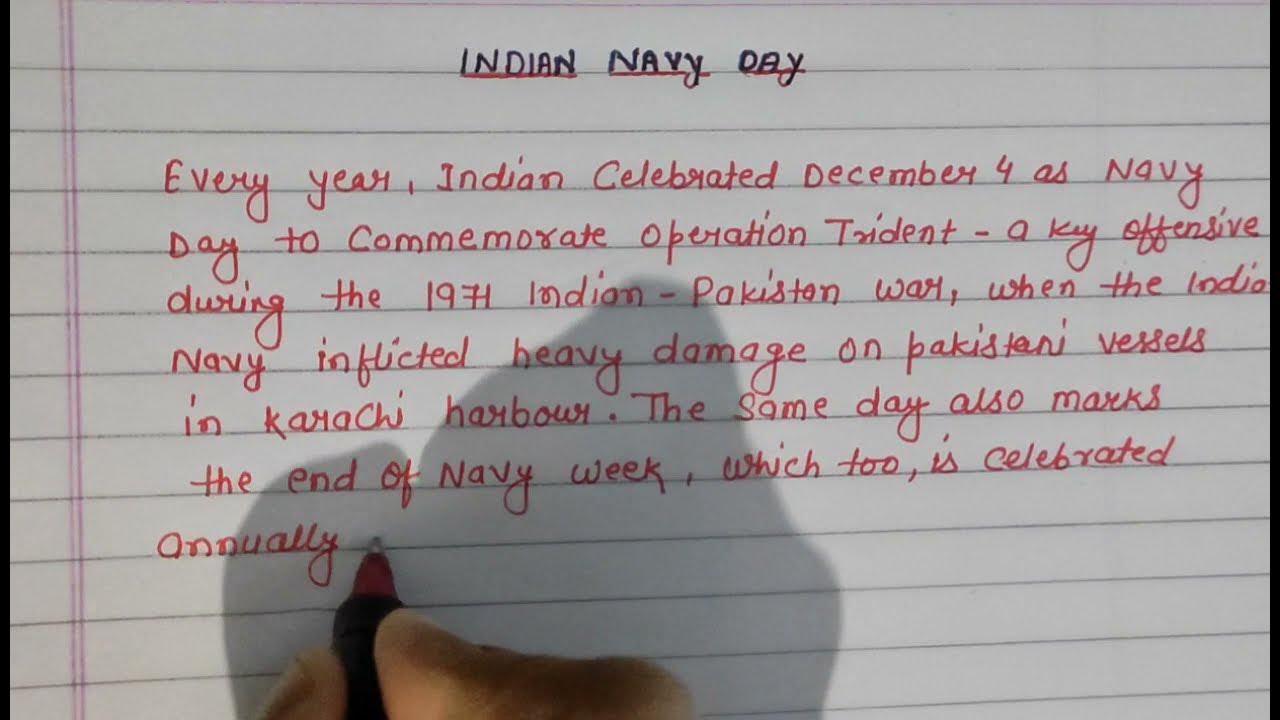 INDIAN NAVY DAY
Every year, Indian Celebrated December 4 as Navy
Day to Commemorate Operation Trident - a key offensive
during the 1971 Indian - Pakistan war, when the India
Navy inflicted heavy damage on pakistani vessels
in Karachi harbour. The same day also marks
the end of Navy week, which too, is celebrated
annually